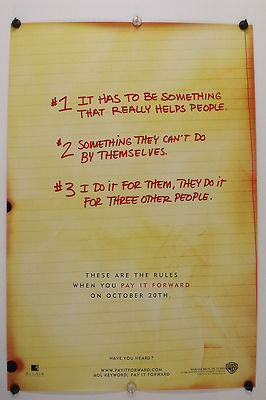 #1 IT HAS TO BE SOMETHING
THAT REALLY HELPS PEOPLE.
#2 SOMETHING THEY CAN'T DO
BY THEMSELVES.
#3 I DO IT FOR THEM, THEY DO IT
FOR THREE OTHER PEOPLE.
THESE ARE THE RULES
WHEN YOU PAY IT FORWARD
ON OCTOBER 20TH.
HAVE YOU HEARD?
WWW.PAYITFORWARD.COM
AOL KEYWORD: PAY IT FORWARD